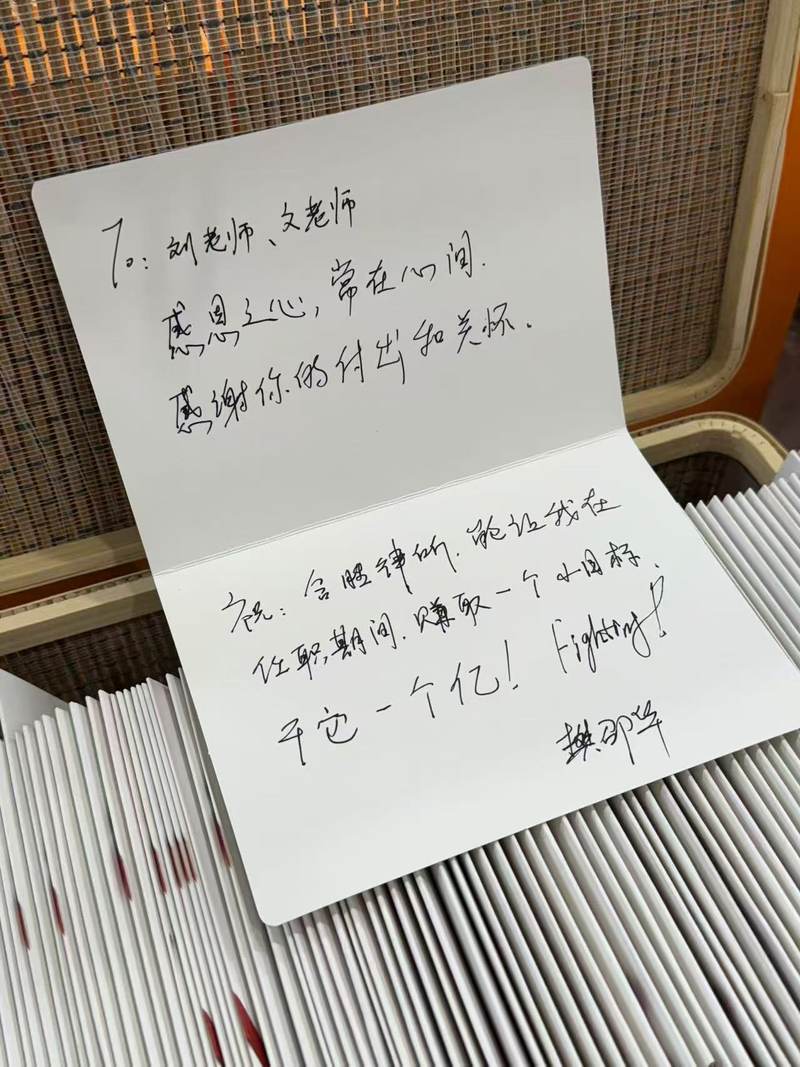 To: 刘老师、文老师
感恩之心，常在心间.
感谢你的付出和关怀.
祝: 含胜律所.能让我在
任职期间.赚取一个小目标.
干它一个亿! Fighting!
樊邵华